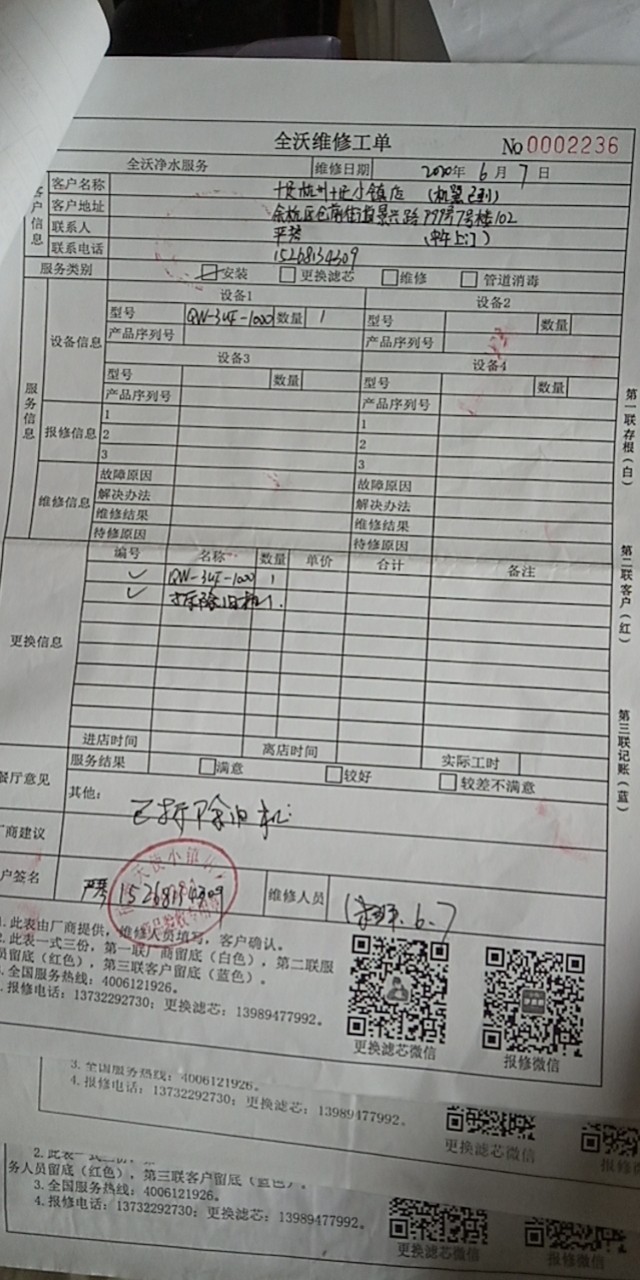 全沃维修工单
No 0002236
全沃净水服务 维修日期 2020年 6月 7日
客户信息
客户名称 (机器已到)
客户地址 余杭区仓前街道景兴路799号7号楼102
联系人 (中午上门)
联系电话 15268134309
服务类别 安装 更换滤芯 维修 管道消毒
服务信息
设备信息
设备1 设备2
型号 QW-3UF-1000 数量 1 型号 数量
产品序列号 产品序列号
设备3 设备4
型号 数量 型号 数量
产品序列号 产品序列号
报修信息
1 1
2 2
3 3
维修信息
故障原因 故障原因
解决办法 解决办法
维修结果 维修结果
待修原因 待修原因
更换信息
编号 名称 数量 单价 合计 备注
✓ QW-3UF-1000 1
✓ 拆除旧机 1
进店时间 离店时间 实际工时
餐厅意见 服务结果 满意 较好 较差不满意
其他:
已拆除旧机
厂商建议
户签名 严琴 15268134309 维修人员 6.7
1. 此表由厂商提供，维修人员填写，客户确认。
2. 此表一式三份，第一联厂商留底（白色），第二联服
员留底（红色），第三联客户留底（蓝色）。
3. 全国服务热线：4006121926。
4. 报修电话：13732292730；更换滤芯：13989477992。
更换滤芯微信 报修微信
第一联存根（白）
第二联客户（红）
第三联记账（蓝）
3. 全国服务热线：4006121926。
4. 报修电话：13732292730；更换滤芯：13989477992。
更换滤芯微信 报修
2. 此表一式三份，
务人员留底（红色），第三联客户留底（蓝色）。
3. 全国服务热线：4006121926。
4. 报修电话：13732292730；更换滤芯：13989477992。
更换滤芯微信 报修微信